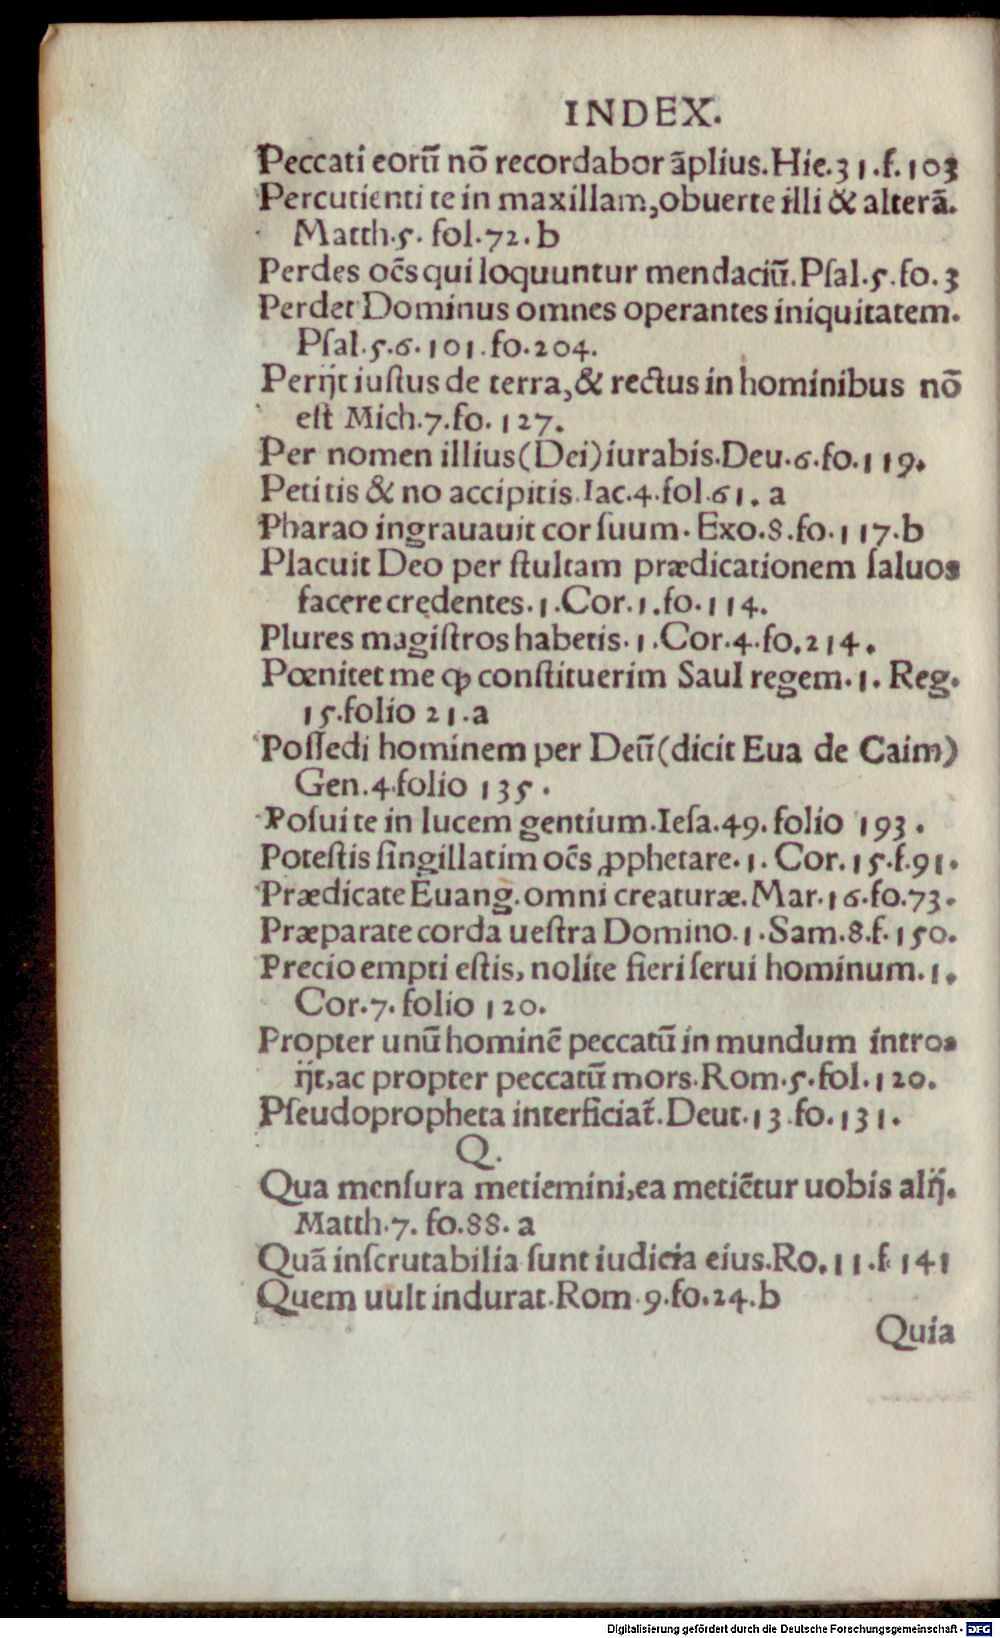 INDEX.
Peccati eorũ nõ recordabor ãplius.Hie.31.f.103
Percutienti te in maxillam,obuerte illi & alterã.
Matth.5. fol.72.b
Perdes oẽs qui loquuntur mendaciũ.Pſal.5.fo.3
Perdet Dominus omnes operantes iniquitatem.
Pſal.5.6.101.fo.204.
Perijt iuſtus de terra,& rectus in hominibus nõ
eſt Mich.7.fo.127.
Per nomen illius(Dei)iurabis.Deu.6.fo.119.
Petitis & no accipitis.Iac.4.fol.61.a
Pharao ingrauauit cor ſuum. Exo.8.fo.117.b
Placuit Deo per ſtultam prædicationem ſaluos
facere credentes.1.Cor.1.fo.114.
Plures magiſtros habetis.1.Cor.4.fo.214.
Pœnitet me ꝙ conſtituerim Saul regem.1. Reg.
15.folio 21.a
Poſſedi hominem per Deũ(dicit Eua de Caim)
Gen.4.folio 135.
Poſui te in lucem gentium.Ieſa.49. folio 193.
Poteſtis ſingillatim oẽs ꝓphetare.1. Cor.15.f.91.
Prædicate Euang.omni creaturæ.Mar.16.fo.73.
Præparate corda ueſtra Domino.1.Sam.8.f.150.
Precio empti eſtis, nolite fieri ſerui hominum.1.
Cor.7. folio 120.
Propter unũ hominẽ peccatũ in mundum intro-
ijt,ac propter peccatũ mors.Rom.5.fol.120.
Pſeudopropheta interficiat̃.Deut.13.fo.131.
Q.
Qua menſura metiemini,ea metiẽtur uobis alij.
Matth.7. fo.88. a
Quã inſcrutabilia ſunt iudicia eius.Ro.11.f.141
Quem uult indurat.Rom.9.fo.24.b
Quia
Digitalisierung gefördert durch die Deutsche Forschungsgemeinschaft - DFG